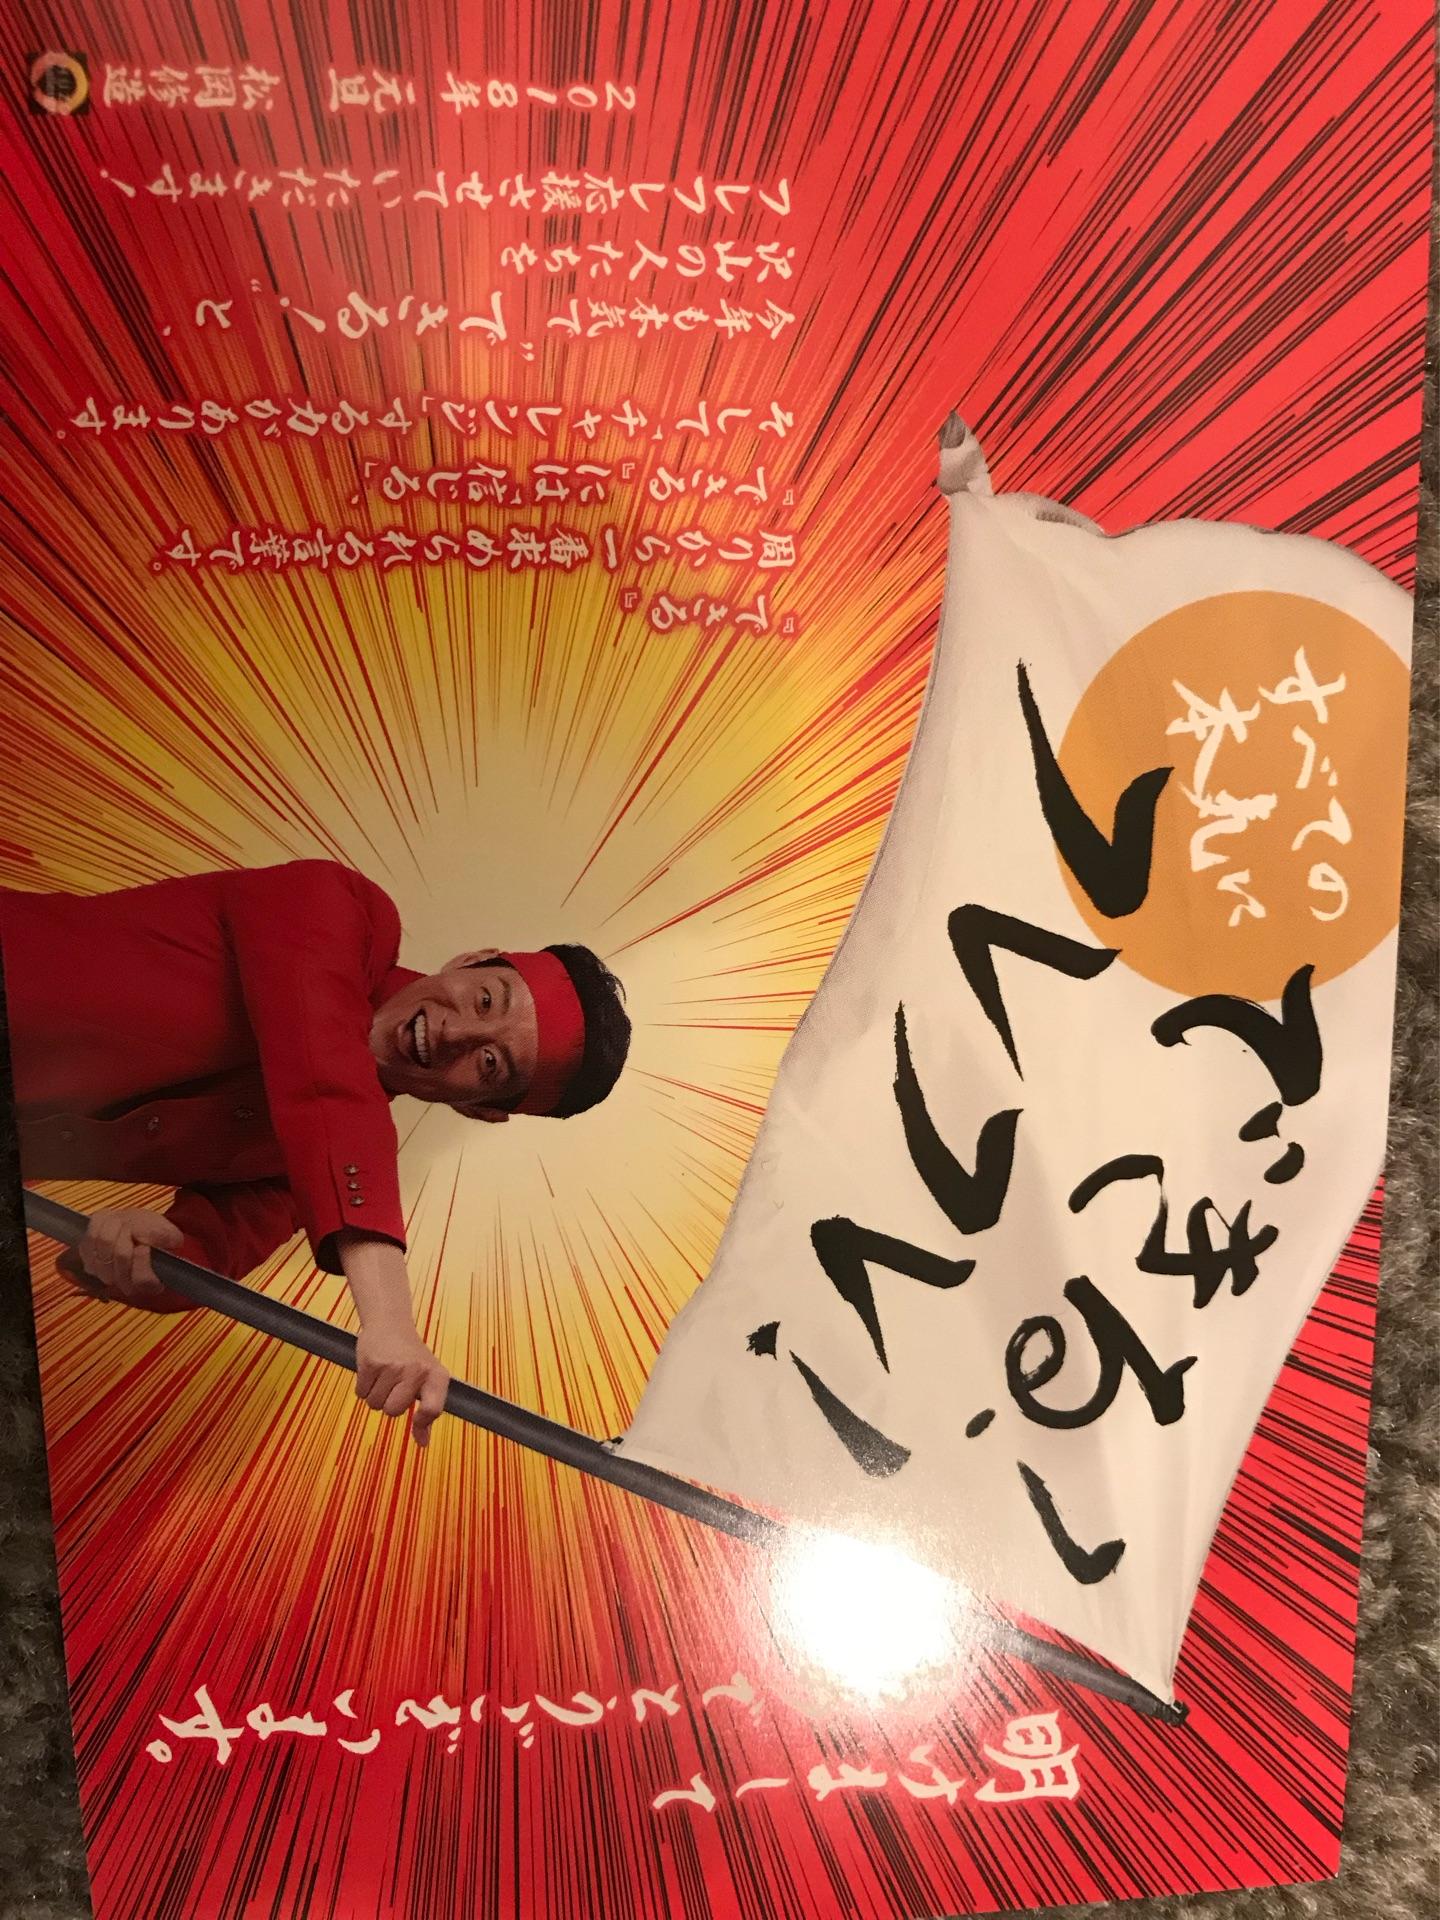 明けまして
でとうございます。
すべての
本気に
できる!
フレフレ!
『できる』
周りから一番求められる言葉です。
『できる』には「信じる」、
そして、「チャレンジ」する力があります。
今年も本気で“できる!”と、
沢山の人たちを
フレフレ応援させていただきます!
2018年 元旦 松岡修造